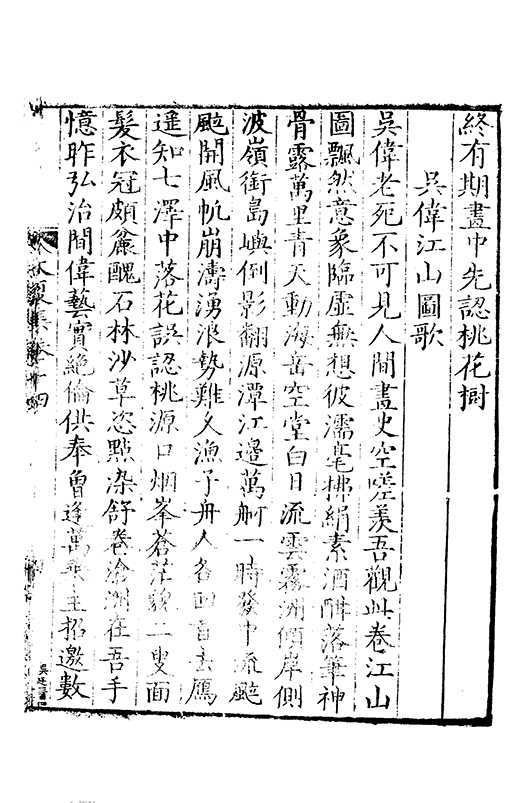 終有期畫中先認桃花樹
吳偉江山圖歌
吳偉老死不可見人間畫史空嗟羨吾觀此卷江山
圖飄然意象臨虛無想彼濡毫拂絹素酒酣落筆神
骨露萬里青天動海岳空堂白日流雲霧洲傾岸側
波嶺銜島嶼倒影翻源潭江邊萬舸一時發中流颭
颭開風帆崩濤湧浪勢難久漁子舟人各回首去鴈
遥知七澤中落花誤認桃源口烟峯蒼茫貌二叟面
髮衣冠頗麄醜石林沙草恣點染舒卷滄洲在吾手
憶昨弘治間偉藝實絶倫供奉曾逢萬乘主招邀數
卷十四